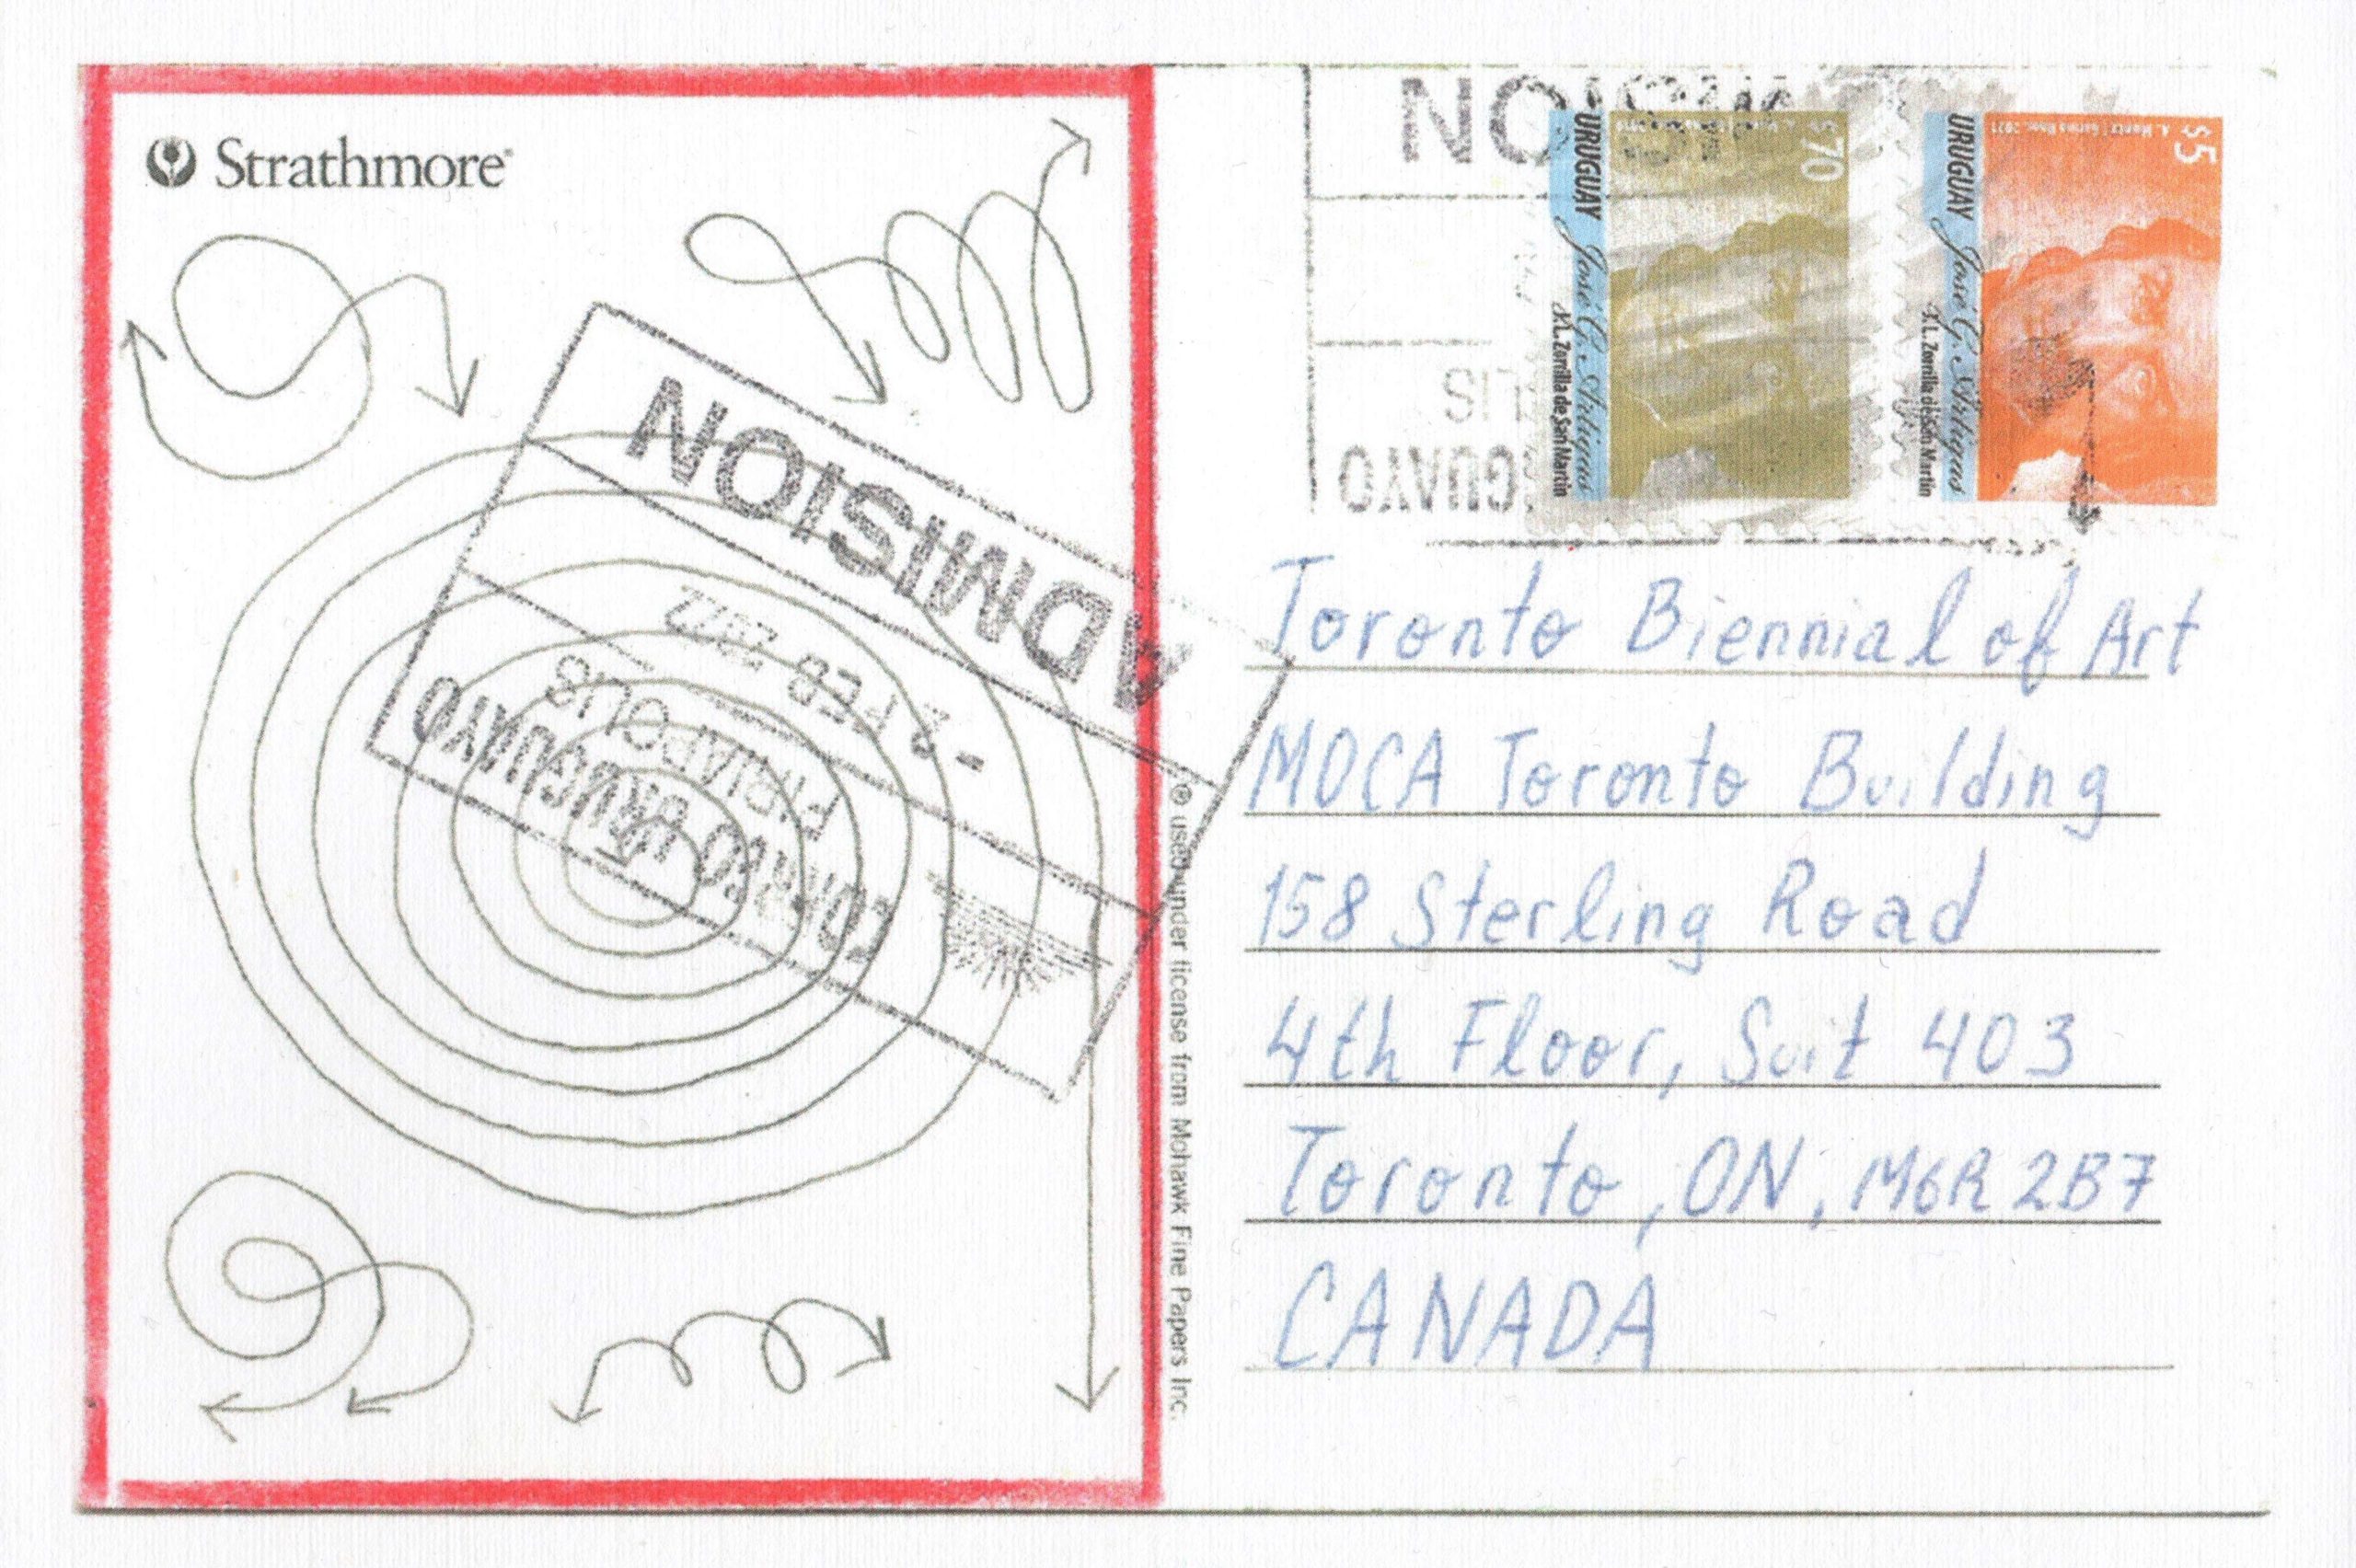 Strathmore®
ADMISION
- 2 FEB 2022
PIRIAPOLIS
CORREO URUGUAYO
® used under license from Mohawk Fine Papers Inc.
$70
URUGUAY
José G. Artigas
J.L. Zorrilla de San Martín
$5
URUGUAY
José G. Artigas
J.L. Zorrilla de San Martín
Toronto Biennial of Art
MOCA Toronto Building
158 Sterling Road
4th Floor, Suit 403
Toronto, ON, M6R 2B7
CANADA